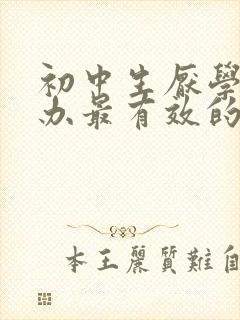 初中生厭學
办最有效的
本王麗質難自